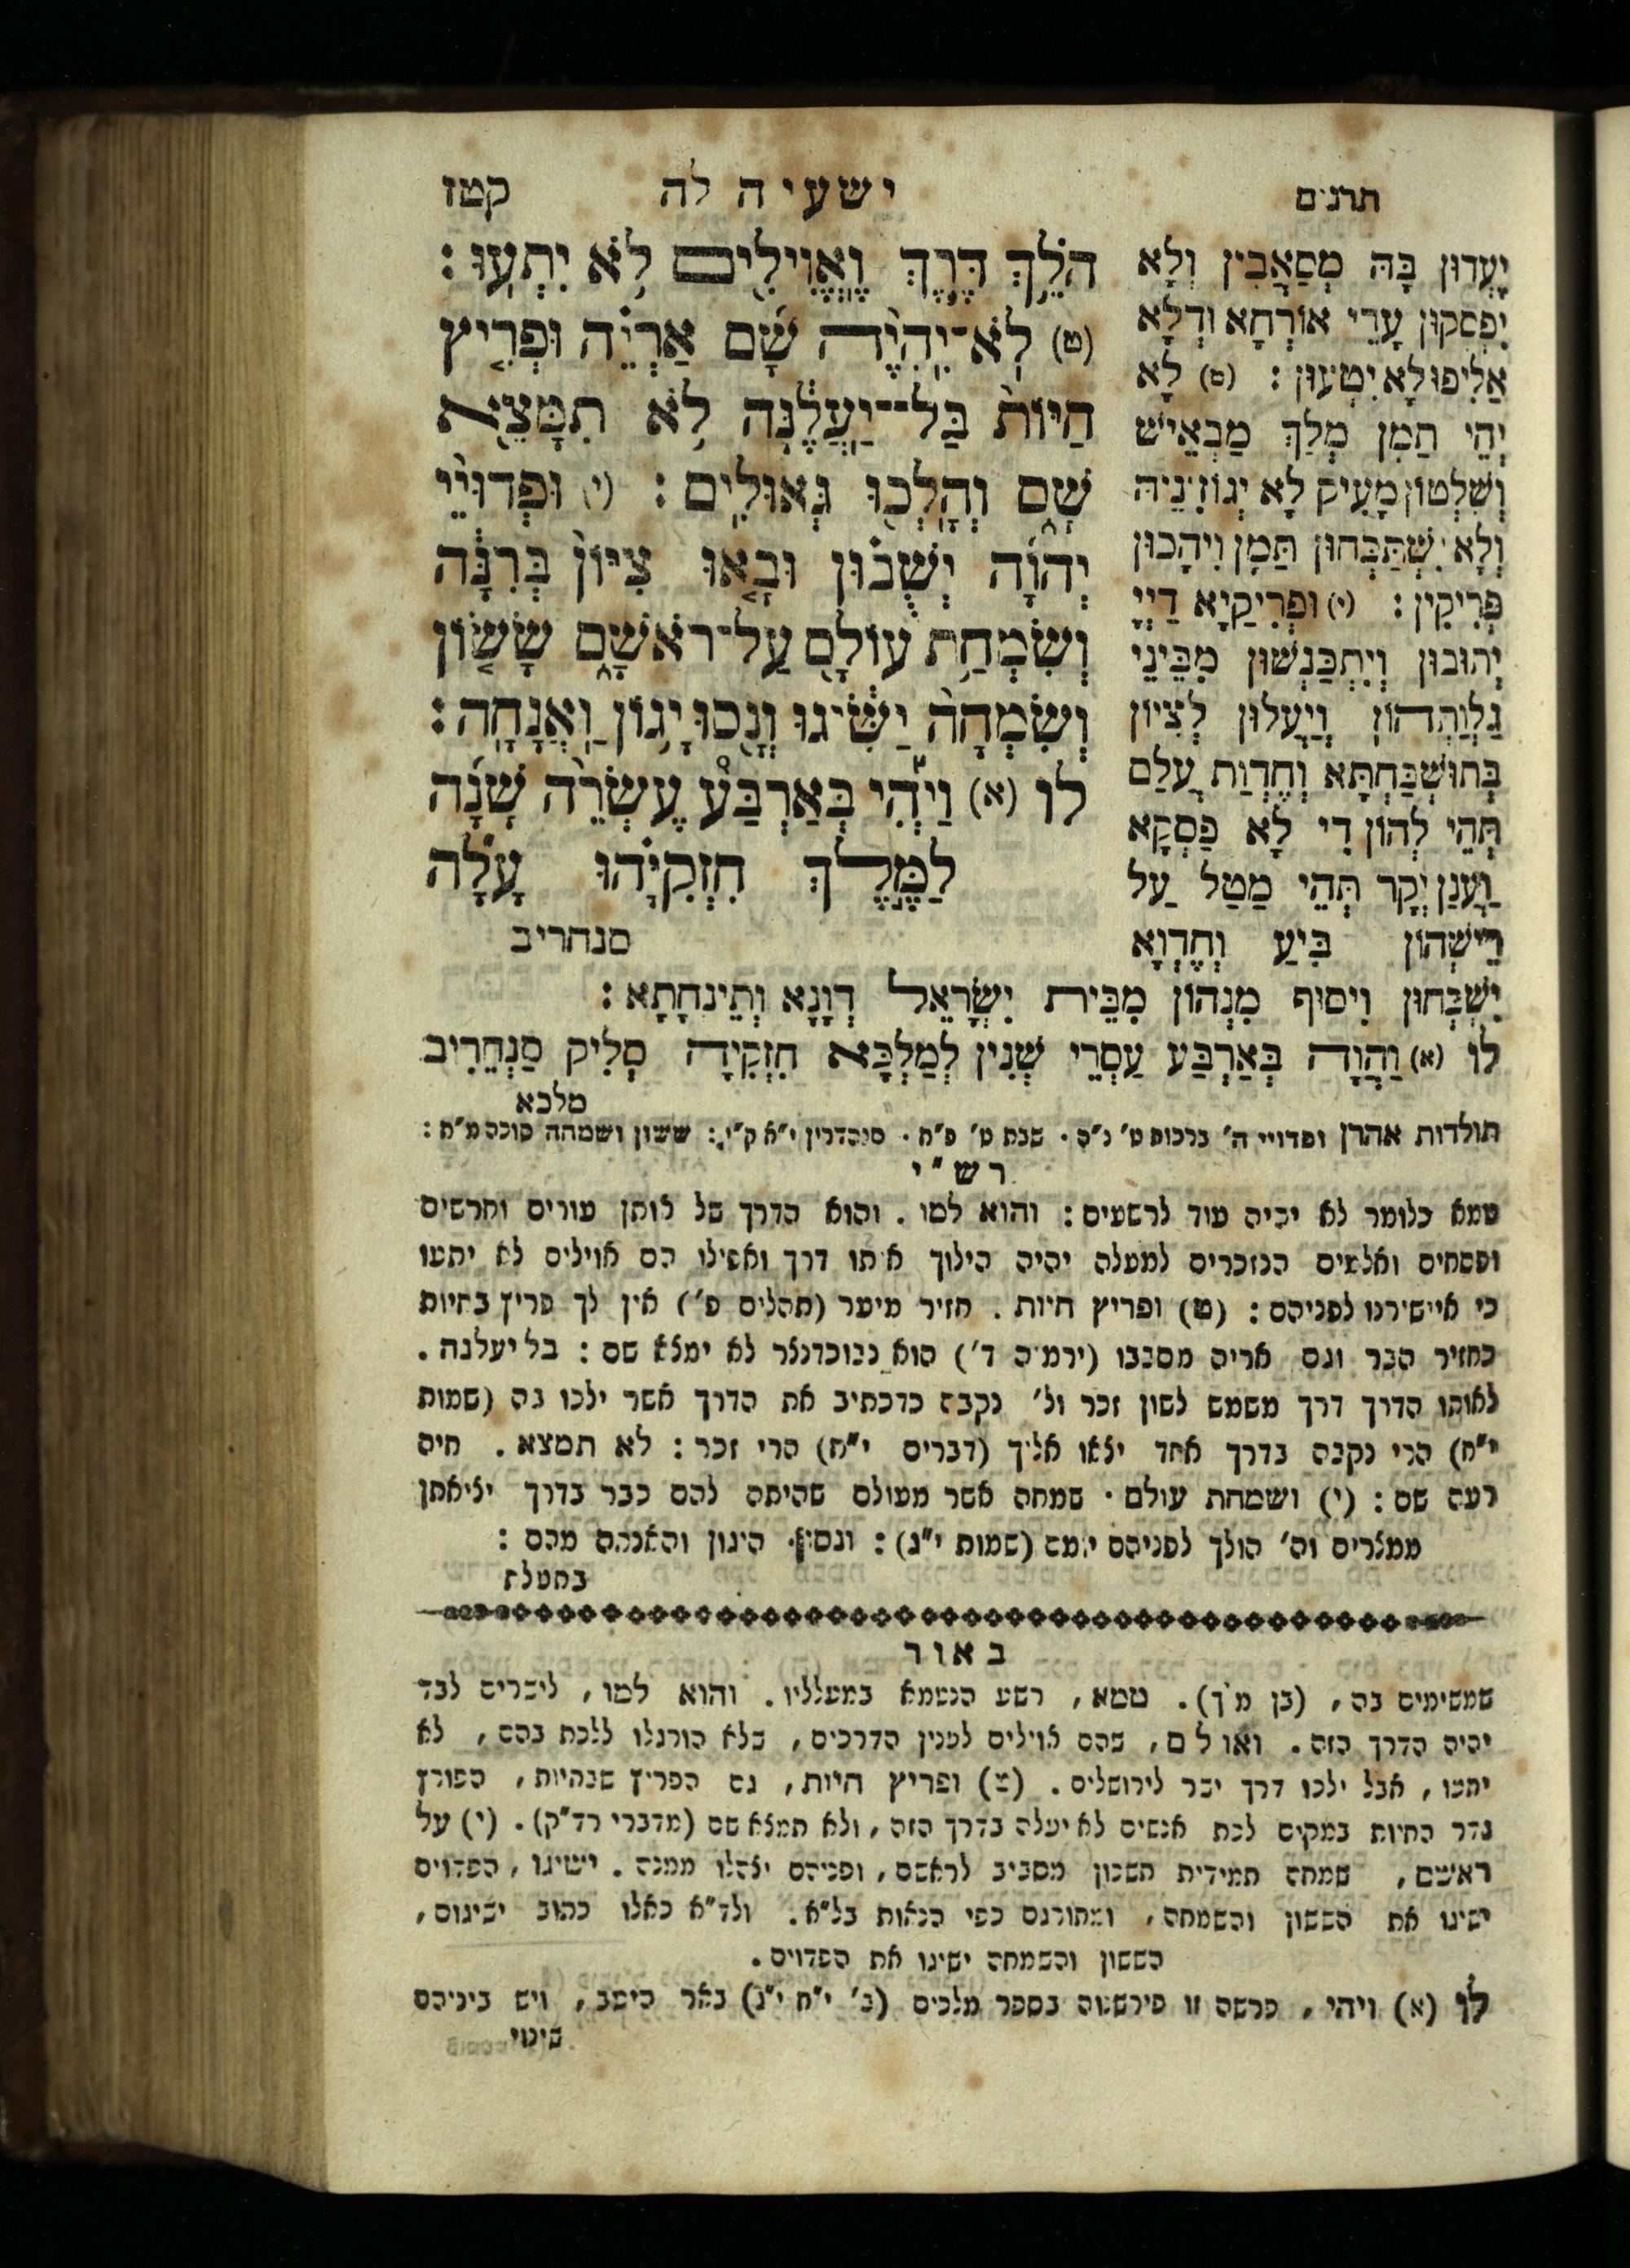 תרגום
ישעיה לה
קטז
הֹלֵ֥ךְ דֶּ֛רֶךְ וֶאֱוִילִ֖ים לֹ֥א יִתְעֽוּ׃
(ט) לֹא־יִהְיֶ֨ה שָׁ֜ם אַרְיֵ֗ה וּפְרִ֤יץ
חַיּוֹת֙ בַּֽל־יַעֲלֶ֔נָּה לֹ֥א תִמָּצֵ֖א
שָׁ֑ם וְהָלְכ֖וּ גְּאוּלִֽים׃ (י) וּפְדוּיֵ֨י
יְהוָ֜ה יְשֻׁב֗וּן וּבָ֤אוּ צִיּוֹן֙ בְּרִנָּ֔ה
וְשִׂמְחַ֥ת עוֹלָ֖ם עַל־רֹאשָׁ֑ם שָׂשׂ֤וֹן
וְשִׂמְחָה֙ יַשִּׂ֔יגוּ וְנָ֖סוּ יָג֥וֹן וַאֲנָחָֽה׃
לו (א) וַיְהִ֡י בְּאַרְבַּע֩ עֶשְׂרֵ֨ה שָׁנָ֜ה
לַמֶּ֣לֶךְ חִזְקִיָּ֗הוּ עָלָ֞ה
סנחריב
יֶעְדוּן בָּהּ מְסַאֲבִין וְלָא
יִפְסְקוּן עָדֵי אוֹרְחָא וּדְלָא
אַלִיפוּ לָא יִטְעוּן׃ (ט) לָא
יְהֵי תַמָן מְלַךְ מַבְאֵישׁ
וְשִׁלְטוֹן מָעִיק לָא יְגוֹזִינֵיהּ
וְלָא יִשְׁתַּבְּחוּן תַּמָן וִיהָכוּן
פְּרִיקִין׃ (י) וּפְרִיקַיָא דַיְיָ
יְתוּבוּן וְיִתְכַּנְשׁוּן מִבֵּינֵי
גַלְוַתְהוֹן וְיֵעֲלוּן לְצִיוֹן
בְּתוּשְׁבַּחְתָּא וְחֶדְוַת עֲלַם
תְּהֵי לְהוֹן דִי לָא פַסְקָא
וַעֲנַן יְקָר תְּהֵי מַטַל עַל
רֵישְׁהוֹן בִּיעַ וְחֶדְוָא
יִשְׁבְּחוּן וִיסוּף מִנְהוֹן מִבֵּית יִשְׂרָאֵל דְוָנָא וְתֵינחָתָא׃
לו (א) וַהֲוָה בְּאַרְבַּע עַסְרֵי שְׁנִין לְמַלְכָּא חִזְקִיָה סְלִיק סַנְחֵרִיב
מלכא
תולדות אהרן ופדויי ה' ברכות ט' נ"ה. שבת ט' פ"ח. סנהדרין י"א ק"י: ששון ושמחה סוכה מ"ח:
רש"י
טמא כלומר לא יהיה עוד לרשעים: והוא למו. והוא הדרך של אותן עורים וחרשים
ופסחים ואלמים הנזכרים למעלה יהיה הילוך אותו דרך ואפילו הם אוילים לא יתעו
כי איישירנו לפניהם: (ט) ופריץ חיות. חזיר מיער (תהלים פ') אין לך פריץ בחיות
כחזיר הבר וגם אריה מסבבו (ירמיה ד') הוא נבוכדנצר לא ימצא שם: בל יעלנה.
לאותו הדרך דרך משמש לשון זכר ול' נקבה כדכתיב את הדרך אשר ילכו בה (שמות
י"ח) הרי נקבה בדרך אחד יצאו אליך (דברים י"ח) הרי זכר: לא תמצא. חיה
רעה שם: (י) ושמחת עולם. שמחה אשר מעולם שהיתה להם כבר בדרך יציאתן
ממצרים וה' הולך לפניהם יומם (שמות י"ג): ונסו. היגון והאנחה מהם:
באור
שמשימים בה, (בן מ"ך). טמא, רשע הנטמא במעלליו. והוא למו, לישרים לבד
יהיה הדרך הזה. ואוילים, שהם אוילים לענין הדרכים, שלא הורגלו ללכת בהם, לא
יתעו, אבל ילכו דרך ישר לירושלים. (ט) ופריץ חיות, גם הפריץ שבחיות, הפורץ
גדר החיות במקום לכת אנשים לא יעלה בדרך הזה, ולא תמצא שם (מדברי רד"ק). (י) על
ראשם, שמחה תמידית תשכון מסביב לראשם, ופניהם יצהלו ממנה. ישיגו, הפדוים
ישיגו את הששון והשמחה, ומתורגם כפי הנאות בל"א. ולד"א כאלו כתוב ישיגום,
הששון והשמחה ישיגו את הפדוים.
לו (א) ויהי, פרשה זו פירשנוה בספר מלכים (ב' י"ח י"ג) באר היטב, ויש ביניהם
שינוי